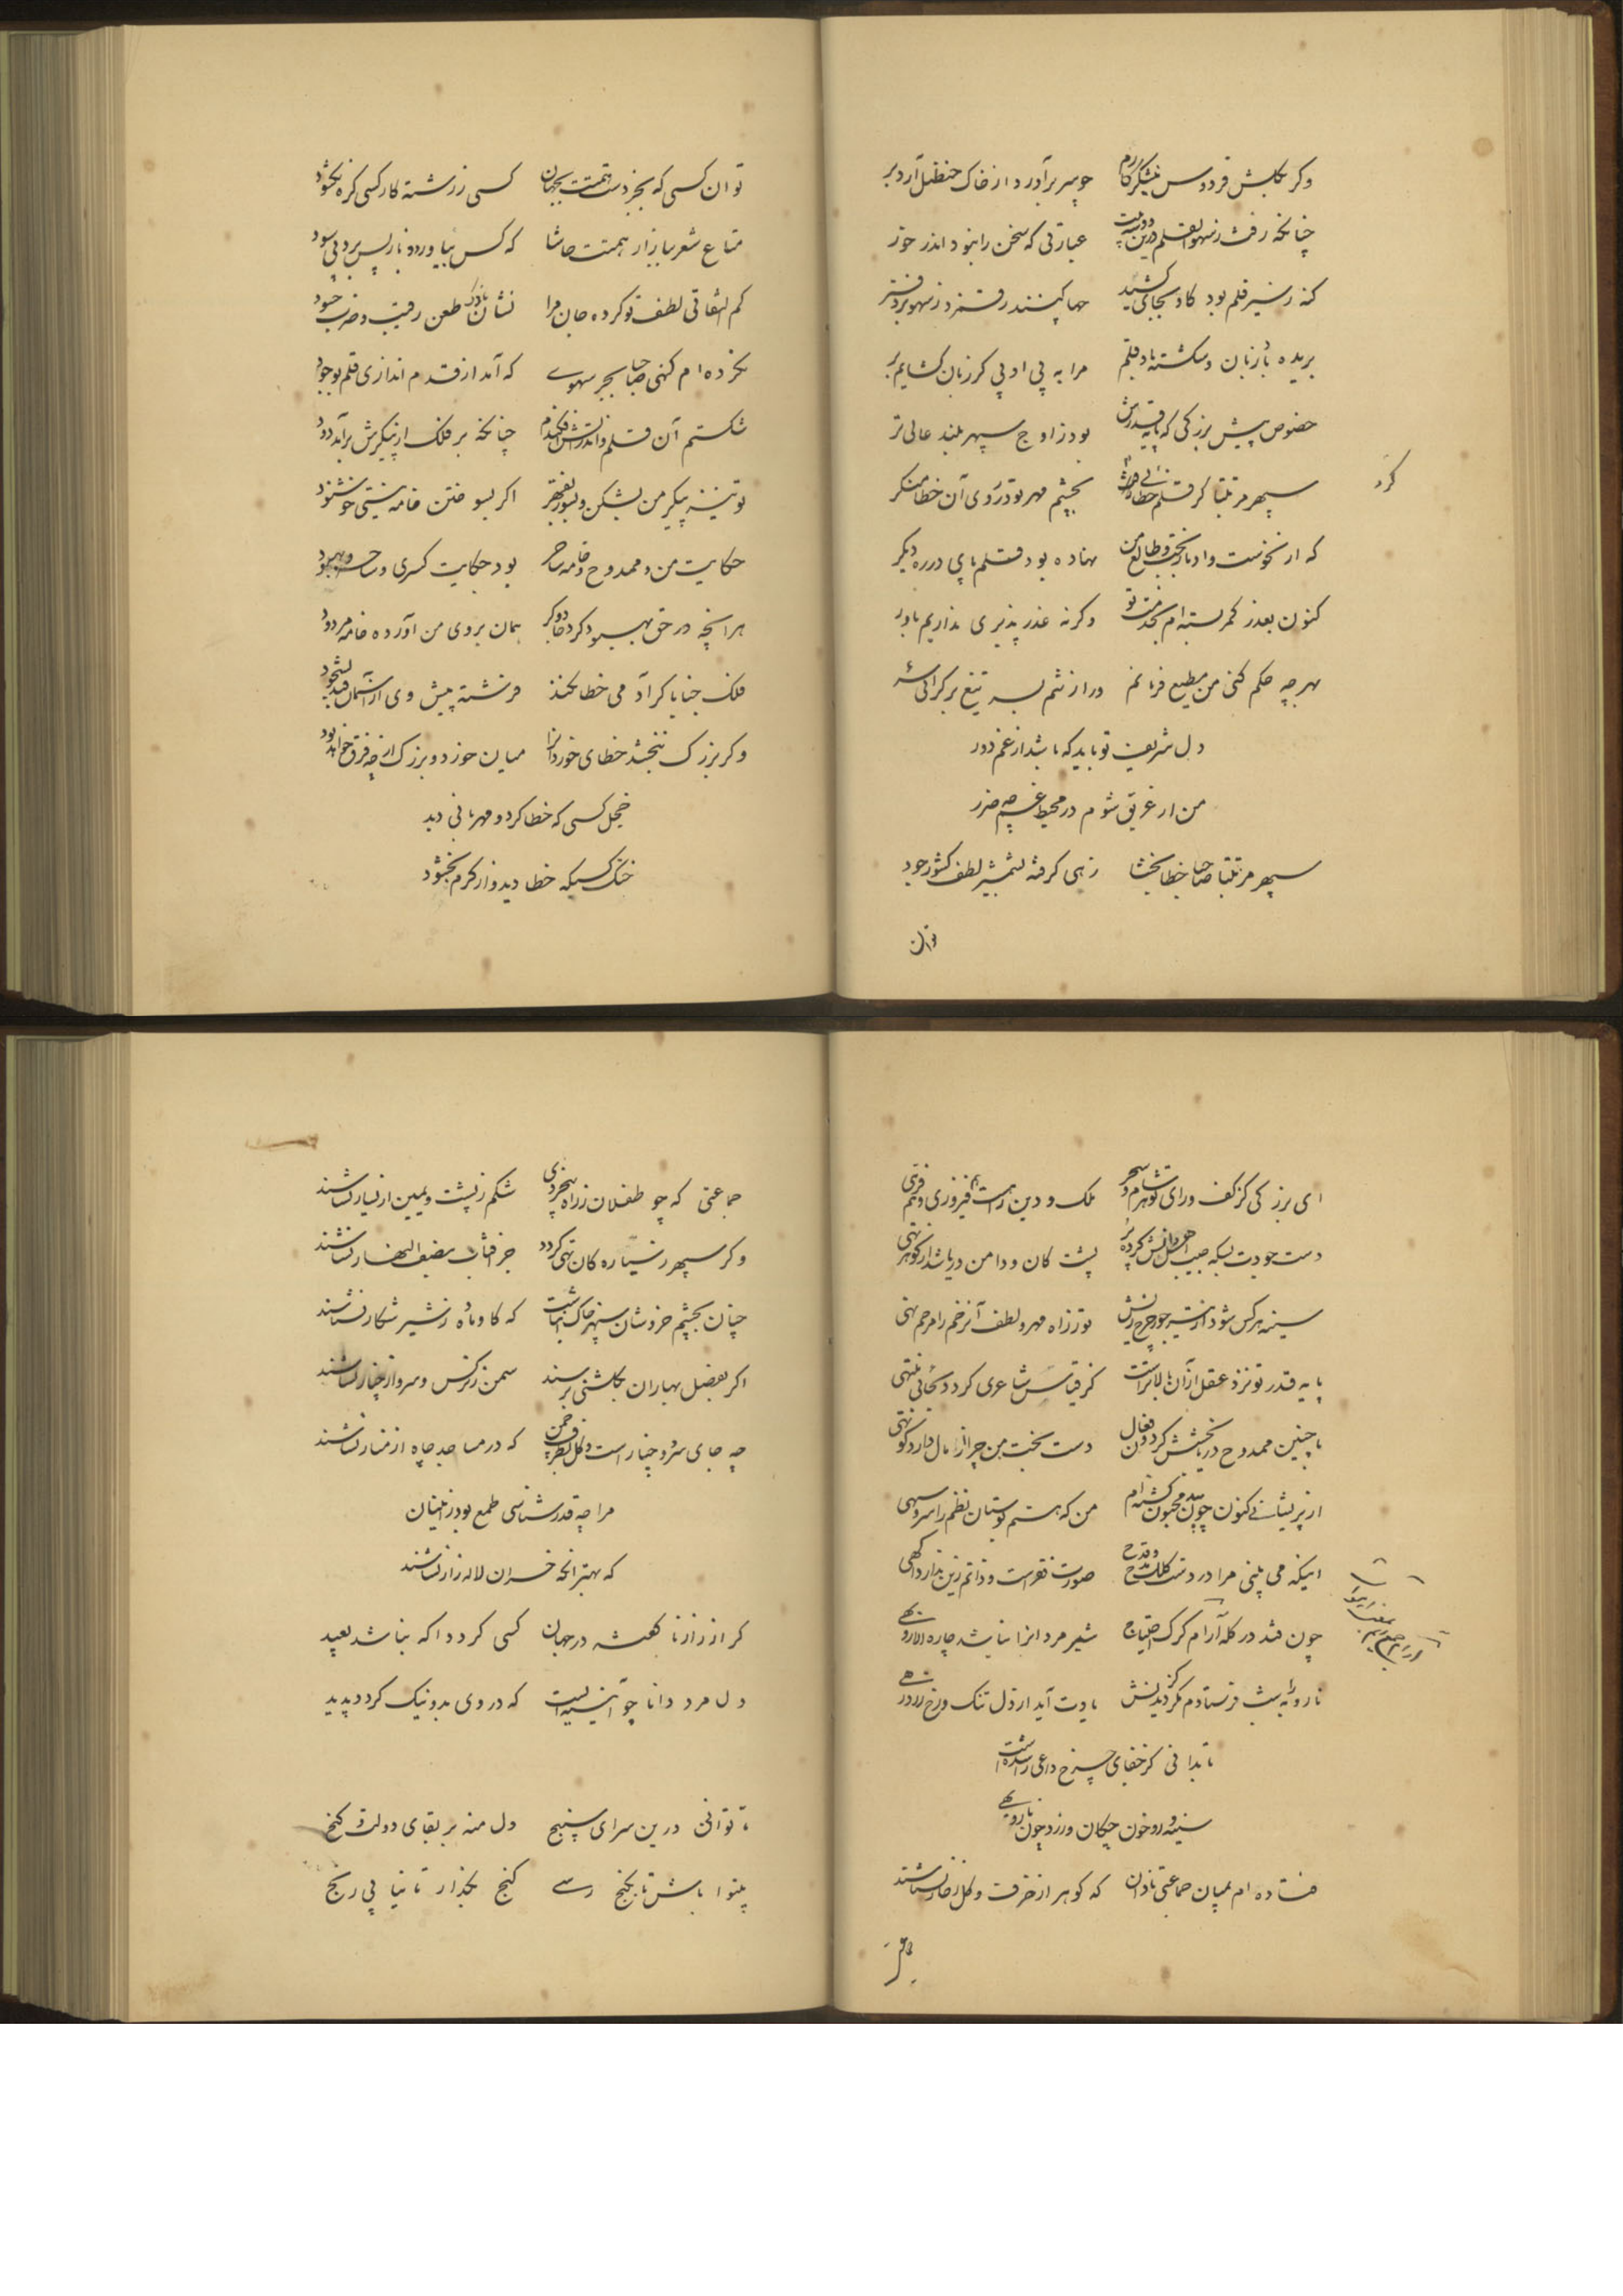 وکر بکلبش فردوس نیشکر کارم چو سر برآورد از خاک حنظل آرد بر
چنانکه رفت ز سهو القلم درین دو سه بیت عبارتی که سخن را نبود اندر خور
کنه ز شیر قلم بود کاو بجای کشید خطا کنند رقمزد ز سهو بر دفتر
بریده باد زبان و شکسته باد قلم مرا به پی ادبی کر زبان کشایم بر
خصوص پیش بزرکی که پایه قدرش بود ز اوج سپهر بلند عالی تر
کرد
سپهر مرتبتا کر قلم خطائی بچشم مهر تو در روی آن خطا منکر
که از نحوست و ادبار بخت و طالع من نهاده بود قلم پای در ره دیکر
کنون بعذر کمر بسته ام بخدمت تو وکرنه عذر پذیری نداریم باور
بهر چه حکم کنی من مطیع فرمانم
دل شریف تو باید که باشد از غم دور
من ار غریق شوم در محیط غم چه ضرر
سپهر مرتبتا صاحبا خطا بخشا زهی کرفته بشمشیر لطف کشور جود
توان
تو ان کسی که بجز دست همتت بجهان کسی ز رشته کار کسی کره نکشود
متاع شعر ببازار همتت حاشا که کس بیاورد و باز پس برد بی سود
کم التفاتی لطف تو کرده جان مرا نشان ناوک طعن رقیب و ضرب حسود
نکرده ام کنهی صاحبا بجز سهوی که آمد از قدم اندازی قلم بوجود
شکستم آن قلم و اندر آتش افکندم چنانکه بر فلک از پیکرش برآمد دود
تو نیز پیکر من بشکن و بسوز بقهر اکر بسوختن خامه نیستی خوشنود
حکایت من و ممدوح و خامه ساحر بود حکایت کسری و ساحر و بهبود
هرانچه در حق بهبود کرد جادوکر همان بروی من آورده خامه مردود
فلک جنابا کر آدمی خطا نکند فرشته پیش وی از آسمان فتد بسجود
وکر بزرک نبخشد خطای خوردانرا میان خورد و بزرک از چه فرق خواهد بود
خجل کسی که خطا کرد و مهربانی دید
خنک کسیکه خطا دید و از کرم بخشود
ای بزرکی کز کف و رای تو هر شام و سحر ملک و دین راهست هم فیروزی و هم فرهی
دست جودت بسکه جیب اهل دانش کرده پر پشت کان و دامن دریا شد از کوهر تهی
سینه هر کس شود از تیر جور چرخ ریش تو ز راه مهر و لطف آنزخم را مرهم نهی
پایه قدر تو نزد عقل از آن بالاتر است کز قیاس شاعری کردد بجائی منتهی
با چنین ممدوح دریا بخشش کردون فعال دست بخت من چرا از مال دارد کوتهی
از پریشانی کنون چون بید مجنون کشته ام من که هستم بوستان نظم را سرو سهی
اینکه می بینی مرا در دست کلک مدح و قدح صورت فقر است و ذاتم زین ندارد آکهی
چون فتد در کله آرام کرک احتیاج شیر مردانرا نباشد چاره الا روبهی
نار و به بهت فرستادم مکر کز دیدنش یادت آید از دل تنک و رخ زرد رهی
تا بدانی کز جفای چرخ داعی را شده است
سینه و رو خون چکان و زرد چون نار و بهی
فتاده ام بمیان جماعتی نادان که کوهر از خزف و کل ز خار نشناسند
جماعتی که چو طفلان ز راه بیخردی شکم ز پشت و یمین از یسار نشناسند
وکر سپهر ز سیاره کان تهی کردد جز آفتاب بنصف النهار نشناسند
چنان بچشم خروشان سپهر خاک انباشت که کاو ماده ز شیر شکار نشناسند
اکر بفصل بهاران بکلشنی برسند سمن ز نرکس و سرو از چنار نشناسند
چه جای سرو و چنار است و کل بطرف چمن که در مساجد چاه از منار نشناسند
مرا چه قدرشناسی طمع بود ز اینان
که بهتر انکه خسران لاله زار نشناسند
کر از راز ناکفته در جهان کسی کردد اکه نباشد بعید
دل مرد دانا چو آئینه ایست که در وی بد و نیک کردد پدید
تا توانی درین سرای سپنج دل منه بر بقای دولت و کنج
بینوا باش تا بکنج رسی کنج بکذار تا نیابی رنج